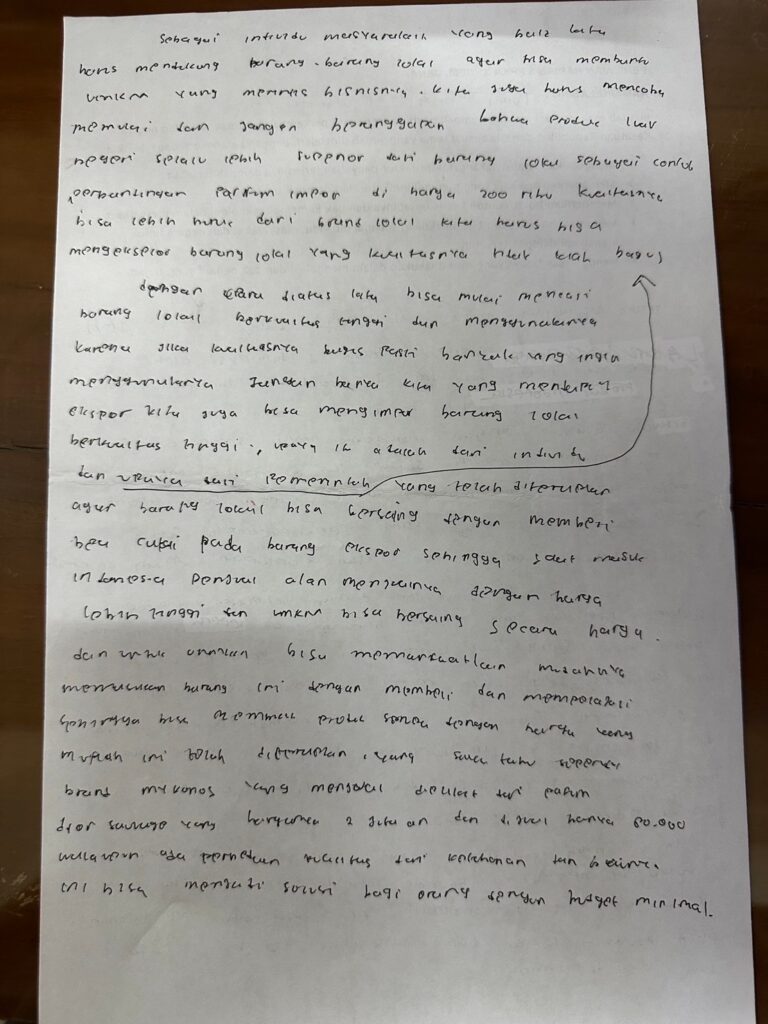 sebagai individu masyarakat yang baik kita
harus mendukung barang-barang lokal agar bisa membantu
UMKM yang merintis bisnisnya. kita juga harus mencoba
memulai dan jangan beranggapan bahwa produk luar
negeri selalu lebih superior dari barang lokal sebagai contoh
perbandingan parfum impor di harga 200 ribu kualitasnya
bisa lebih buruk dari brand lokal kita harus bisa
mengeksplor barang lokal yang kualitasnya tidak kalah bagus
dengan cara diatas kita bisa mulai mencari
barang lokal berkualitas tinggi dan menggunakannya
karena jika kualitasnya bagus pasti banyak yang ingin
menggunakannya jangan hanya kita yang mendapat
ekspor kita juga bisa mengimpor barang lokal
berkualitas tinggi., upaya ini adalah dari individu
dan upaya dari Pemerintah yang telah diterapkan
agar barang lokal bisa bersaing dengan memberi
bea cukai pada barang ekspor sehingga saat masuk
indonesia penjual akan menjualnya dengan harga
lebih tinggi dan umkm bisa bersaing secara harga.
dan untuk bisa memanfaatkan
barang ini dengan membeli dan mempelajari
sehingga bisa membuat produk serupa dengan harga yang
murah ini telah diterapkan, yang saya tahu seperti
brand mykonos yang menjual dari parfum
dior sauvage yang harganya 2 jutaan dan dijual hanya 60.000
walaupun ada perbedaan kualitas dari ketahanan dan
ini bisa menjadi solusi bagi orang dengan budget minimal.